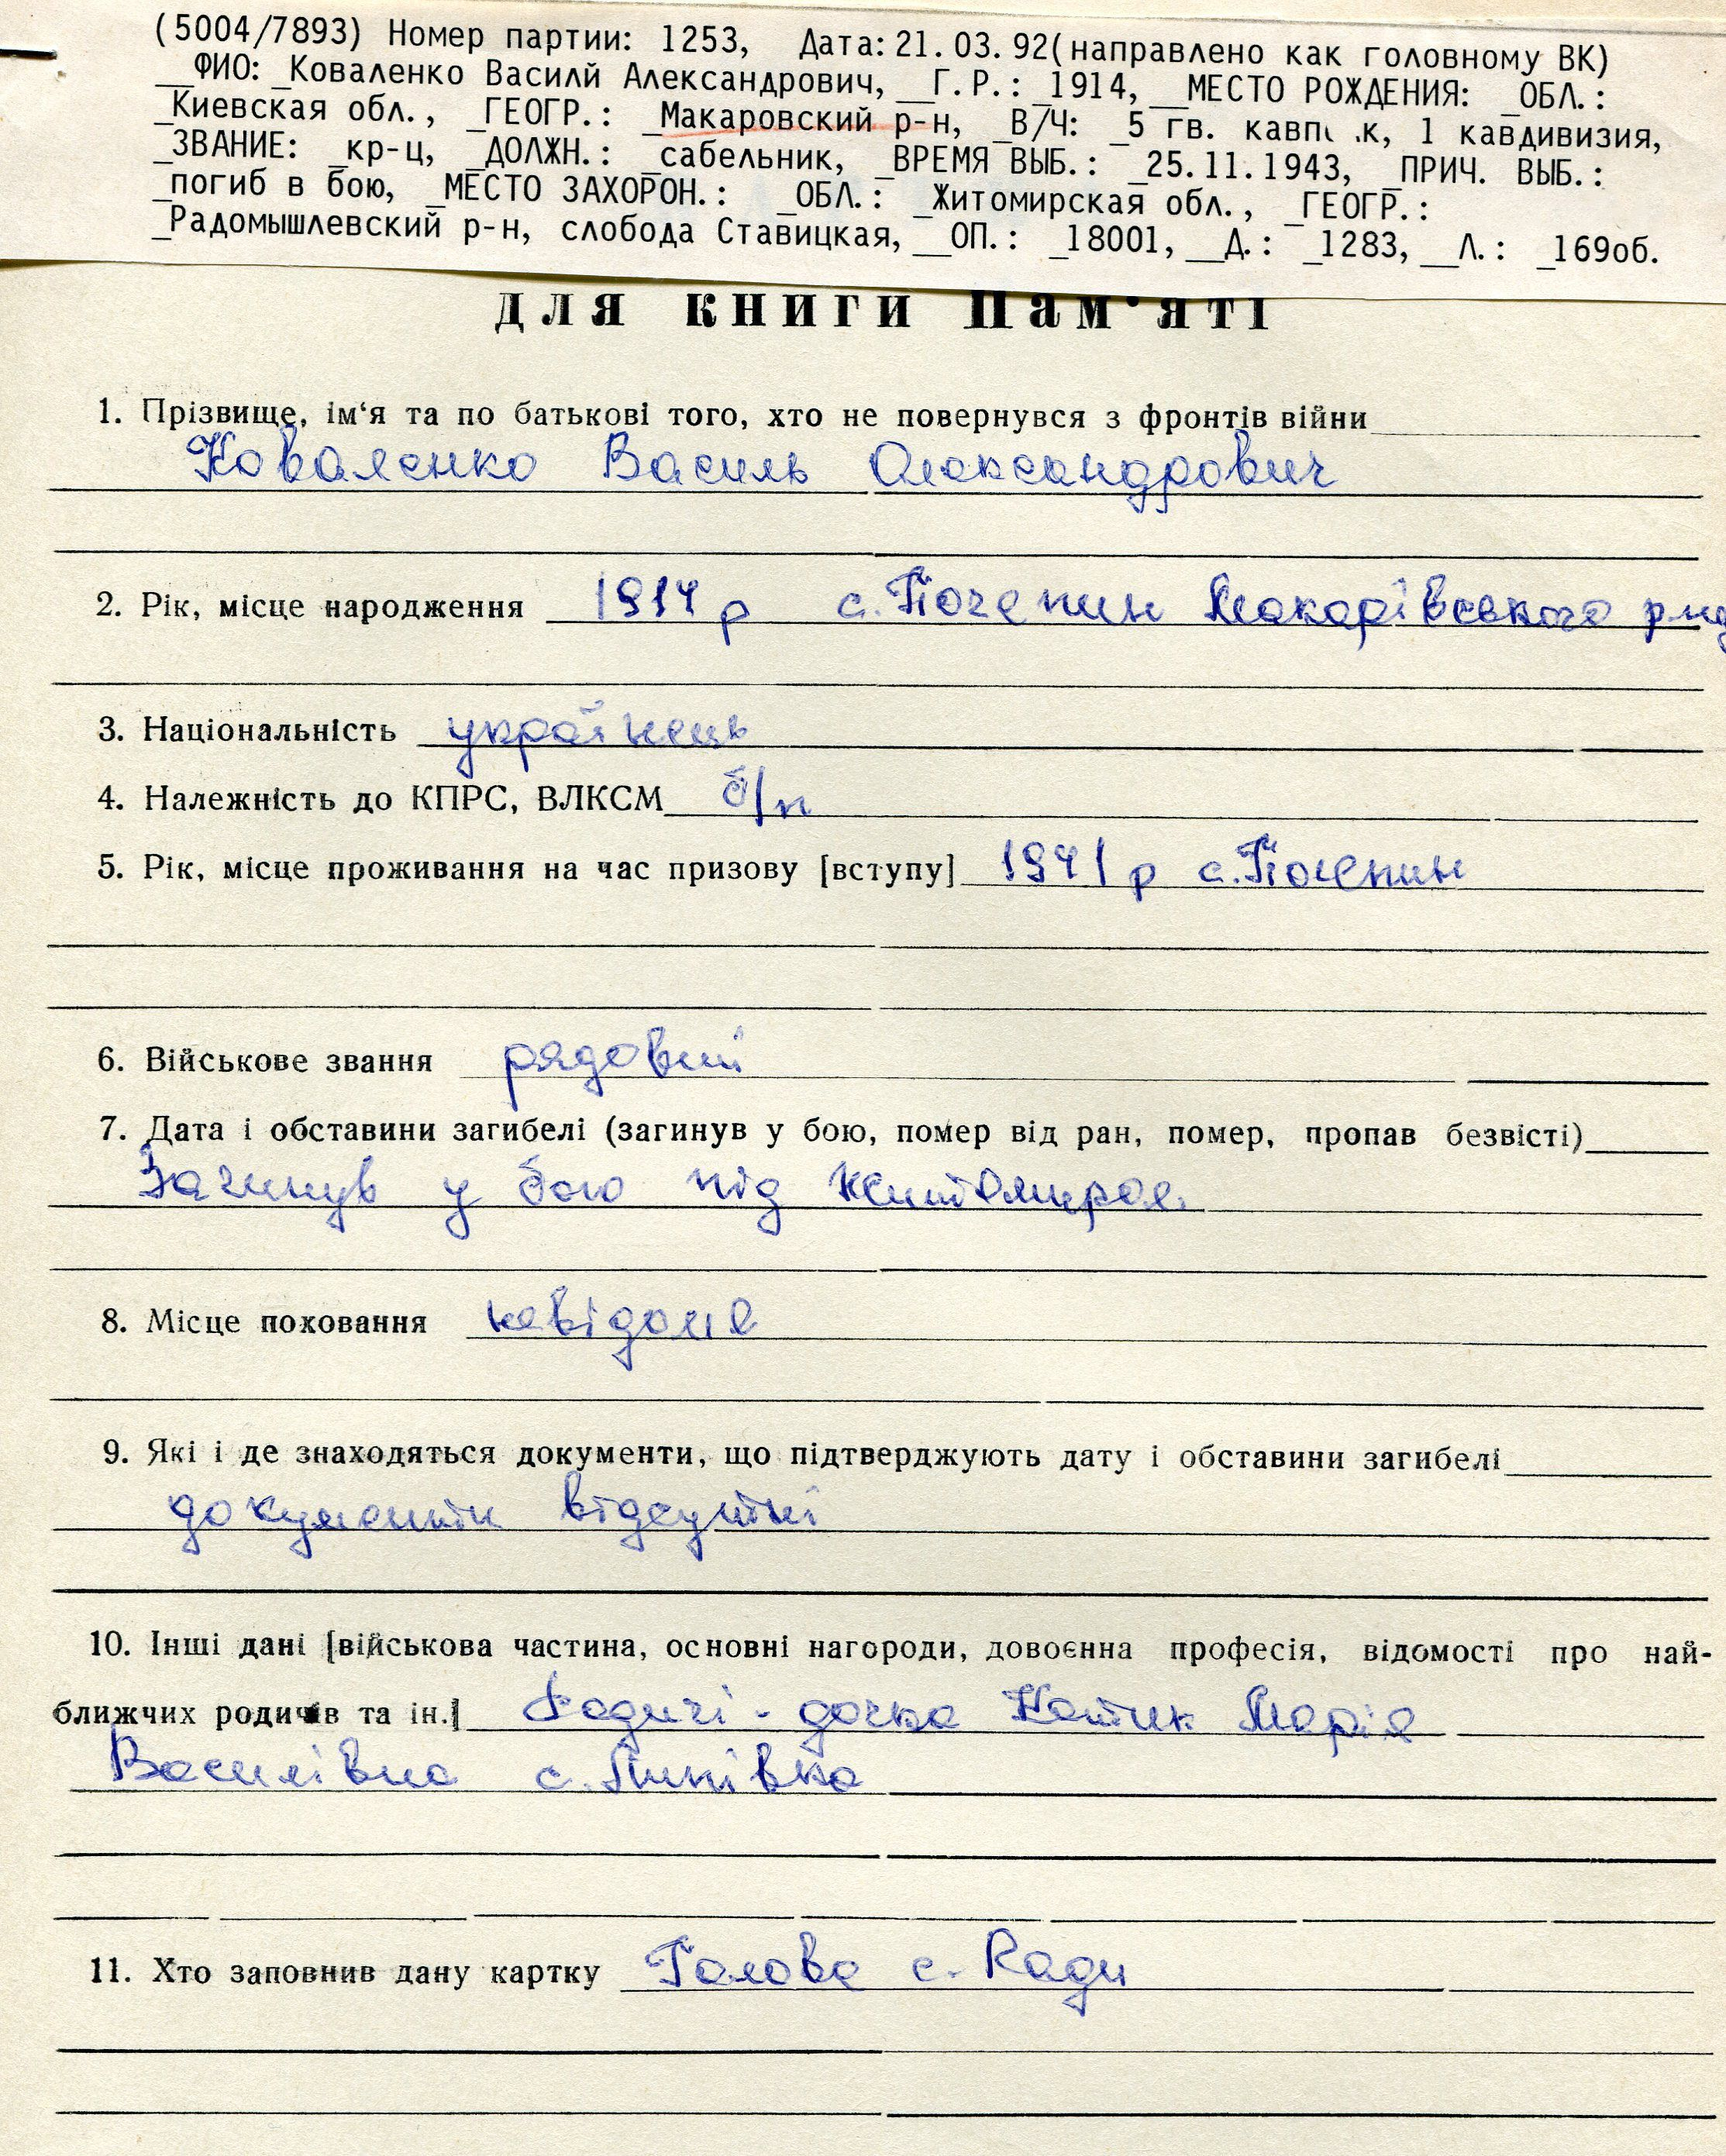 (5004/7893) Номер партии: 1253, Дата: 21.03.92(направлено как головному ВК)
__ФИО: _Коваленко Василй Александрович, __Г.Р.: _1914, __МЕСТО РОЖДЕНИЯ: _ОБЛ.:
_Киевская обл., _ГЕОГР.: _Макаровский р-н, _В/Ч: _5 гв. кавп к, 1 кавдивизия,
_ЗВАНИЕ: _кр-ц, _ДОЛЖН.: _сабельник, _ВРЕМЯ ВЫБ.: _25.11.1943, _ПРИЧ. ВЫБ.:
_погиб в бою, _МЕСТО ЗАХОРОН.: _ОБЛ.: _Житомирская обл., _ГЕОГР.:
_Радомышлевский р-н, слобода Ставицкая, __ОП.: _18001, __Д.: _1283, __Л.: _169об.
для книги Пам'яті
1. Прізвище, ім'я та по батькові того, хто не повернувся з фронтів війни
Коваленко Василь Олександрович
2. Рік, місце народження 1914 р с. Почепин Макарівського р-ну
3. Національність українець
4. Належність до КПРС, ВЛКСМ б/п
5. Рік, місце проживання на час призову [вступу] 1941 р с. Почепин
6. Військове звання рядовий
7. Дата і обставини загибелі (загинув у бою, помер від ран, помер, пропав безвісті)
Загинув у бою під Житомиром.
8. Місце поховання невідоме
9. Які і де знаходяться документи, що підтверджують дату і обставини загибелі
документи відсутні
10. Інші дані [військова частина, основні нагороди, довоєнна професія, відомості про най-
ближчих родичів та ін.] Родичі - дочка Марія
Василівна с. Липівка
11. Хто заповнив дану картку Голова с. Ради